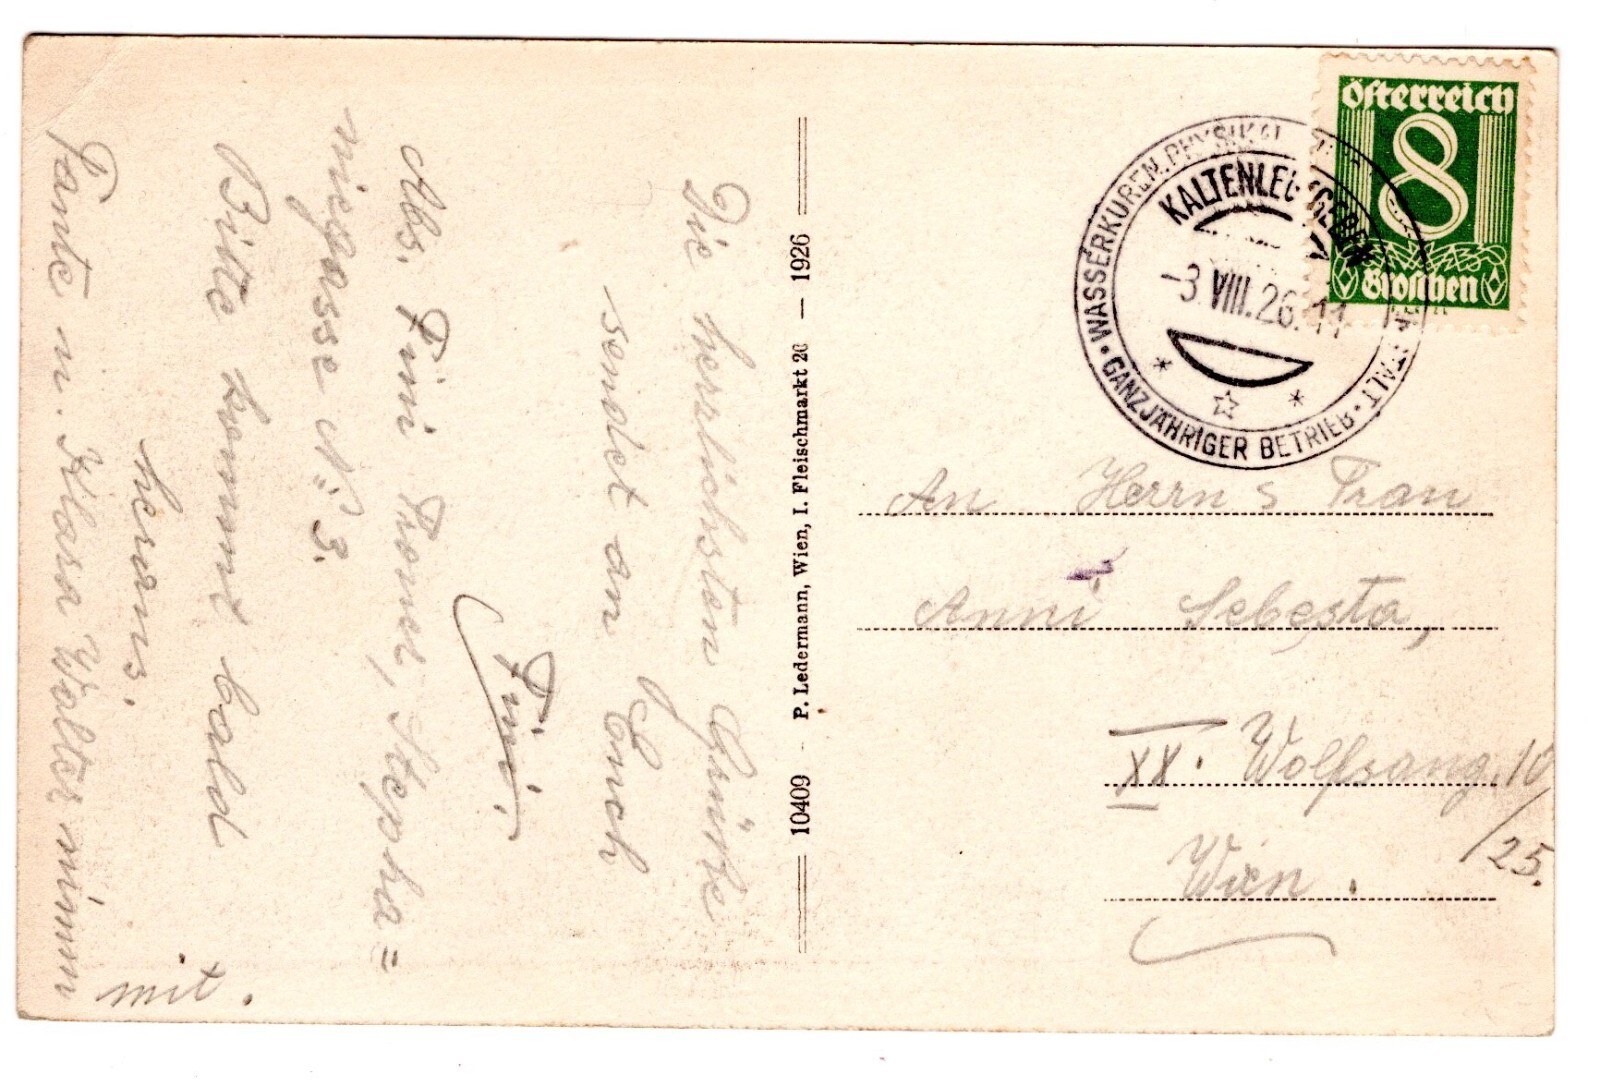 Die herzlichsten Grüße
sendet an Euch
Fini.
Abs. Fini Kroner, Stepha=
niegasse No 3.
Bitte kommt bald
heraus.
Tante u. Klara Walter nimm
mit.
10409 - P. Ledermann, Wien, I. Fleischmarkt 20 — 1926
österreich
8
Groschen
WASSERKUREN. PHYSIKAL
KALTENLEUTGEBEN
-3.VIII.26.11
· GANZJÄHRIGER BETRIEB ·
An Herrn s Frau
Anni Sebesta,
XX. Wolfsaug. 10
/25.
Wien.